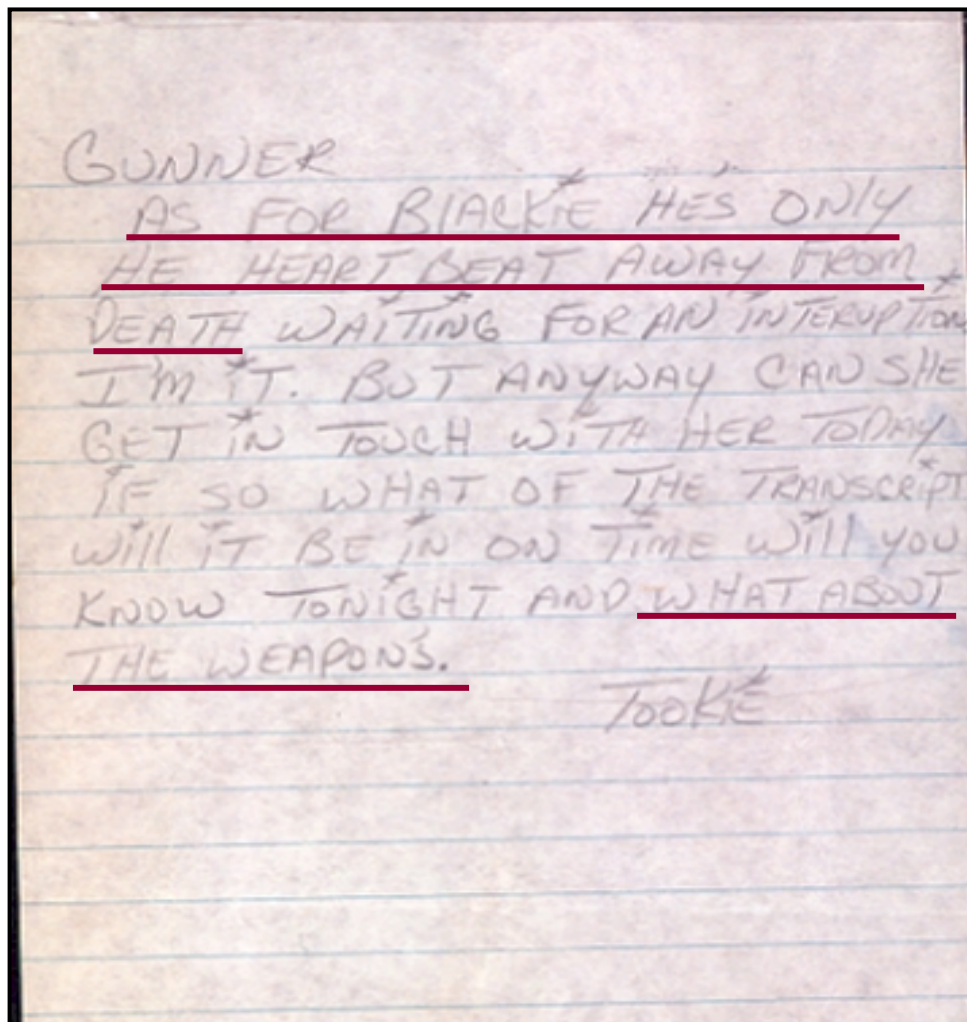 GUNNER
AS FOR BlACKiE HES ONly
HE HEART BEAT AWAY FROM
DEATH WAiTiNG FOR AN iNTERUPTION
I'M iT. BUT ANYWAY CAN SHE
GET iN TOUCH WiTH HER TODAY
iF SO WHAT OF THE TRANSCRiPT
Will iT BE iN ON TiME Will YOU
KNOW TONiGHT AND WHAT ABOUT
THE WEAPONS.
TOOKiE